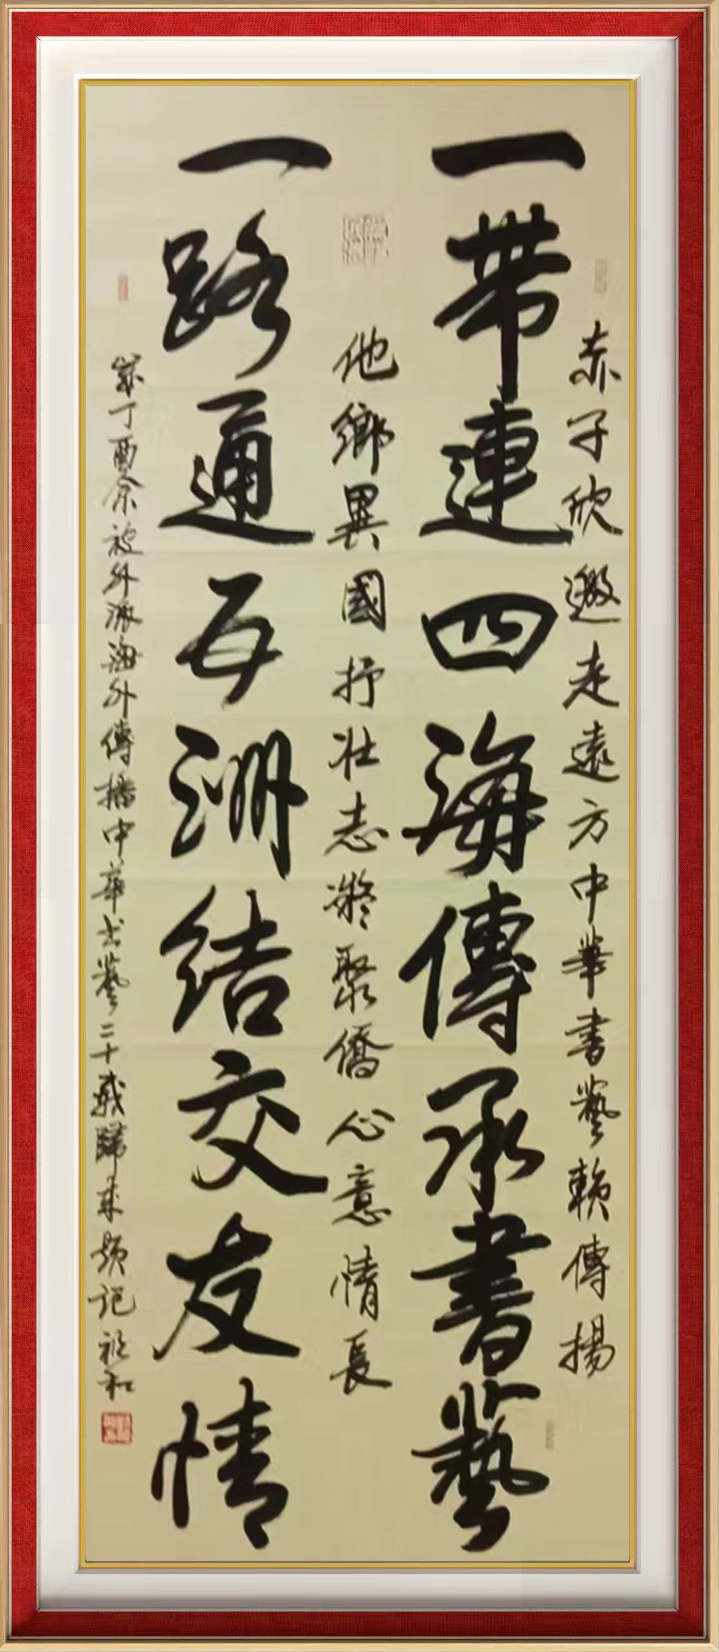 赤子欣邀走遠方中華書藝賴傳揚
一帶連四海傳承書藝
他鄉異國抒壯志凝聚僑心意情長
一路通五洲結交友情
歲丁酉余被外派海外傳播中華书藝二十載歸來題記祖和